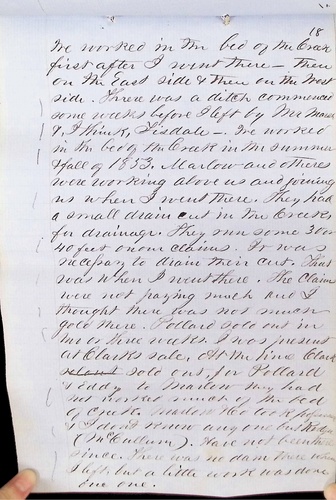 18
We worked in the bed of the Creek
first after I went there — then
on the East side & then on the West
side. There was a ditch commenced
some weeks before I left by
& I think, Tisdale —. We worked
in the bed of the Creek in the summer
& fall of 1853. Marlow and others
were working above us and joining
us when I went there. They had
a small drain cut in the Creek
for drainage. They run some 30 or
40 feet on our claims. It was
necessary to drain their cut. That
was when I went there. The claims
were not paying much and I
thought there was not much
gold there. Pollard sold out in
two or three weeks. I was present
at Clarks sale. At the time Clark
sold out, for Pollard
& Eddy to Marlow they had
not worked much of the bed
of creek. Marlow & Co took
I don't know any one but
(McCullum). Have not been there
since. There was no dam there when
I left, but a little work was done
on one.